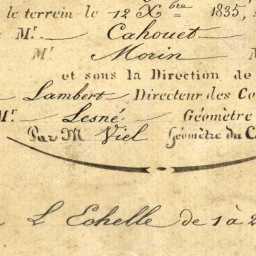 le terrein le 12 Xbre 1835,
Mr. Cahouet
Mr. Morin
et sous la Direction de
Lambert Directeur des Co
Mr. Lesné Géomètre
Par M Viel Géomètre du C
L Echelle de 1 à 2